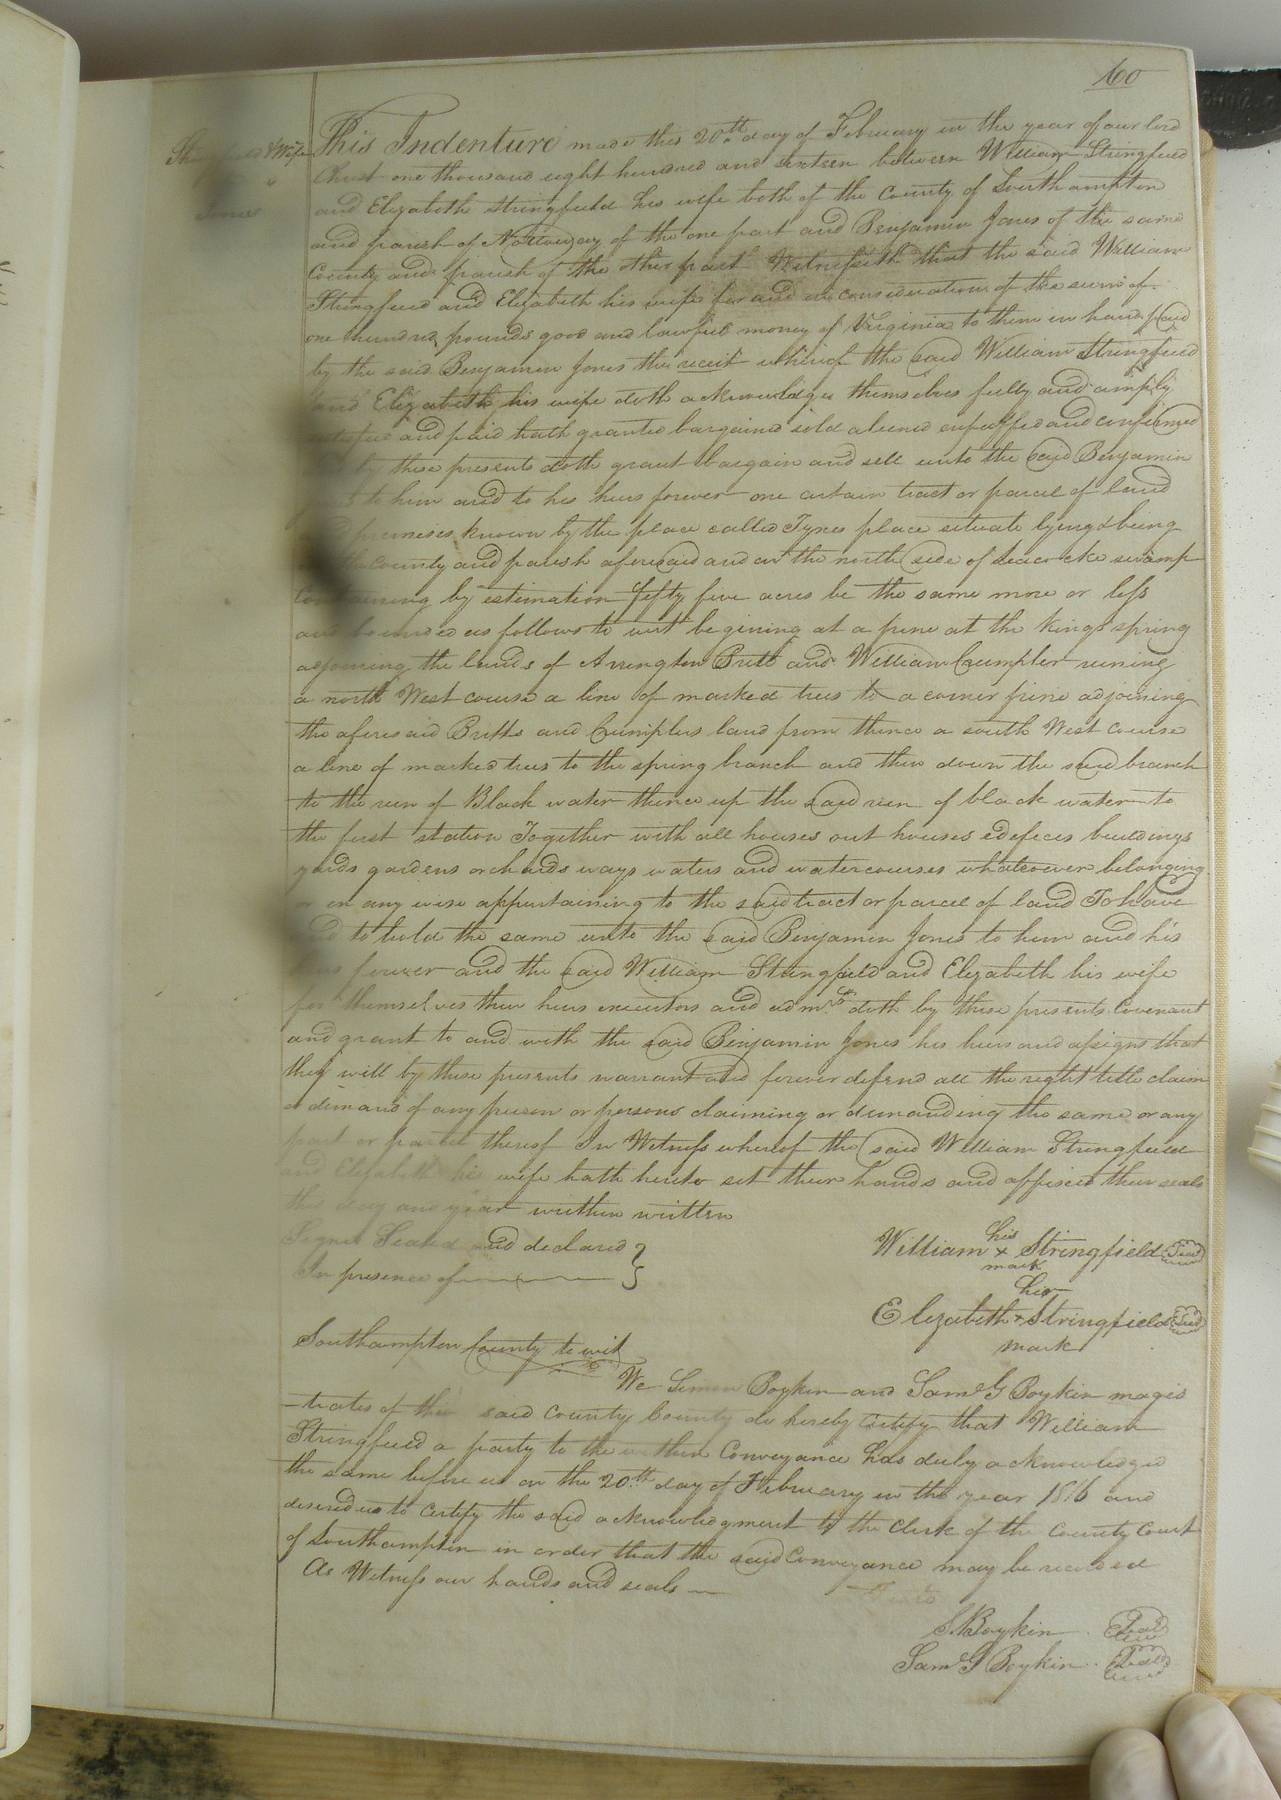 60
& Wife
Jones
This Indenture made this 20th day of February in the year of our lord
Christ one thousand eight hundred and sixteen between William Stringfield
and Elizabeth Stringfield his wife both of the County of Southampton
and parish of Nottoway of the one part and Benjamin Jones of the same
County and parish of the other part Witnesseth that the said William
Stringfield and Elizabeth his wife for and in consideration of the sum of
one hundred pounds good and lawful money of Virginia to them in hand paid
by the said Benjamin Jones the receit whereof the said William Stringfield
and Elizabeth his wife doth acknowledge themselves fully and amply
and paid hath granted bargained sold aliened enfeoffed and confirmed
by these presents doth grant bargain and sell unto the said Benjamin
to him and to his heirs forever one certain tract or parcel of land
premises known by the place called Tynes place situate lying & being
County and parish aforesaid and on the north side of swamp
Containing by estimation fifty five acres be the same more or less
and bounded as follows to wit begining at a pine at the Kings spring
adjoining the lands of Arrington Britt and William Crumpler runing
a north West course a line of marked trees to a corner pine adjoining
the aforesaid Britts and Crumplers land from thence a south West Course
a line of marked trees to the spring branch and then down the said branch
to the run of Black water thence up the said run of black water to
the first station Together with all houses out houses edefices buildings
yards gardens orchards ways waters and watercourses whatsoever belonging
or in any wise appurtaining to the said tract or parcel of land To have
and to hold the same unto the said Benjamin Jones to him and his
heirs forever and the said William Stringfield and Elizabeth his wife
for themselves their heirs executors and admrs doth by these presents Covenant
and grant to and with the said Benjamin Jones his heirs and assigns that
they will by these presents warrant and forever defend all the right title claim
& demand of any person or persons claiming or demanding the same or any
part or parcel thereof In Witness whereof the said William Stringfield
and Elizabeth his wife hath hereto set their hands and affixed their seals
the day and year written written
Signed Sealed and declared }
In presence of }
his
William x Stringfield Seal
mark
her
Elizabeth x Stringfield Seal
mark
Southampton County to wit
We Simon Boykin and Saml G Boykin magis
-trates of the said County County do hereby certify that William
Stringfield a party to the within Conveyance has duly acknowledged
the same before us on the 20th day of February in the year 1816 and
desired us to Certify the said acknowledgment to the Clerk of the County Court
of Southampton in order that the said Conveyance may be recorded
As Witness our hands and seals
S. Boykin Seal
Saml G Boykin Seal